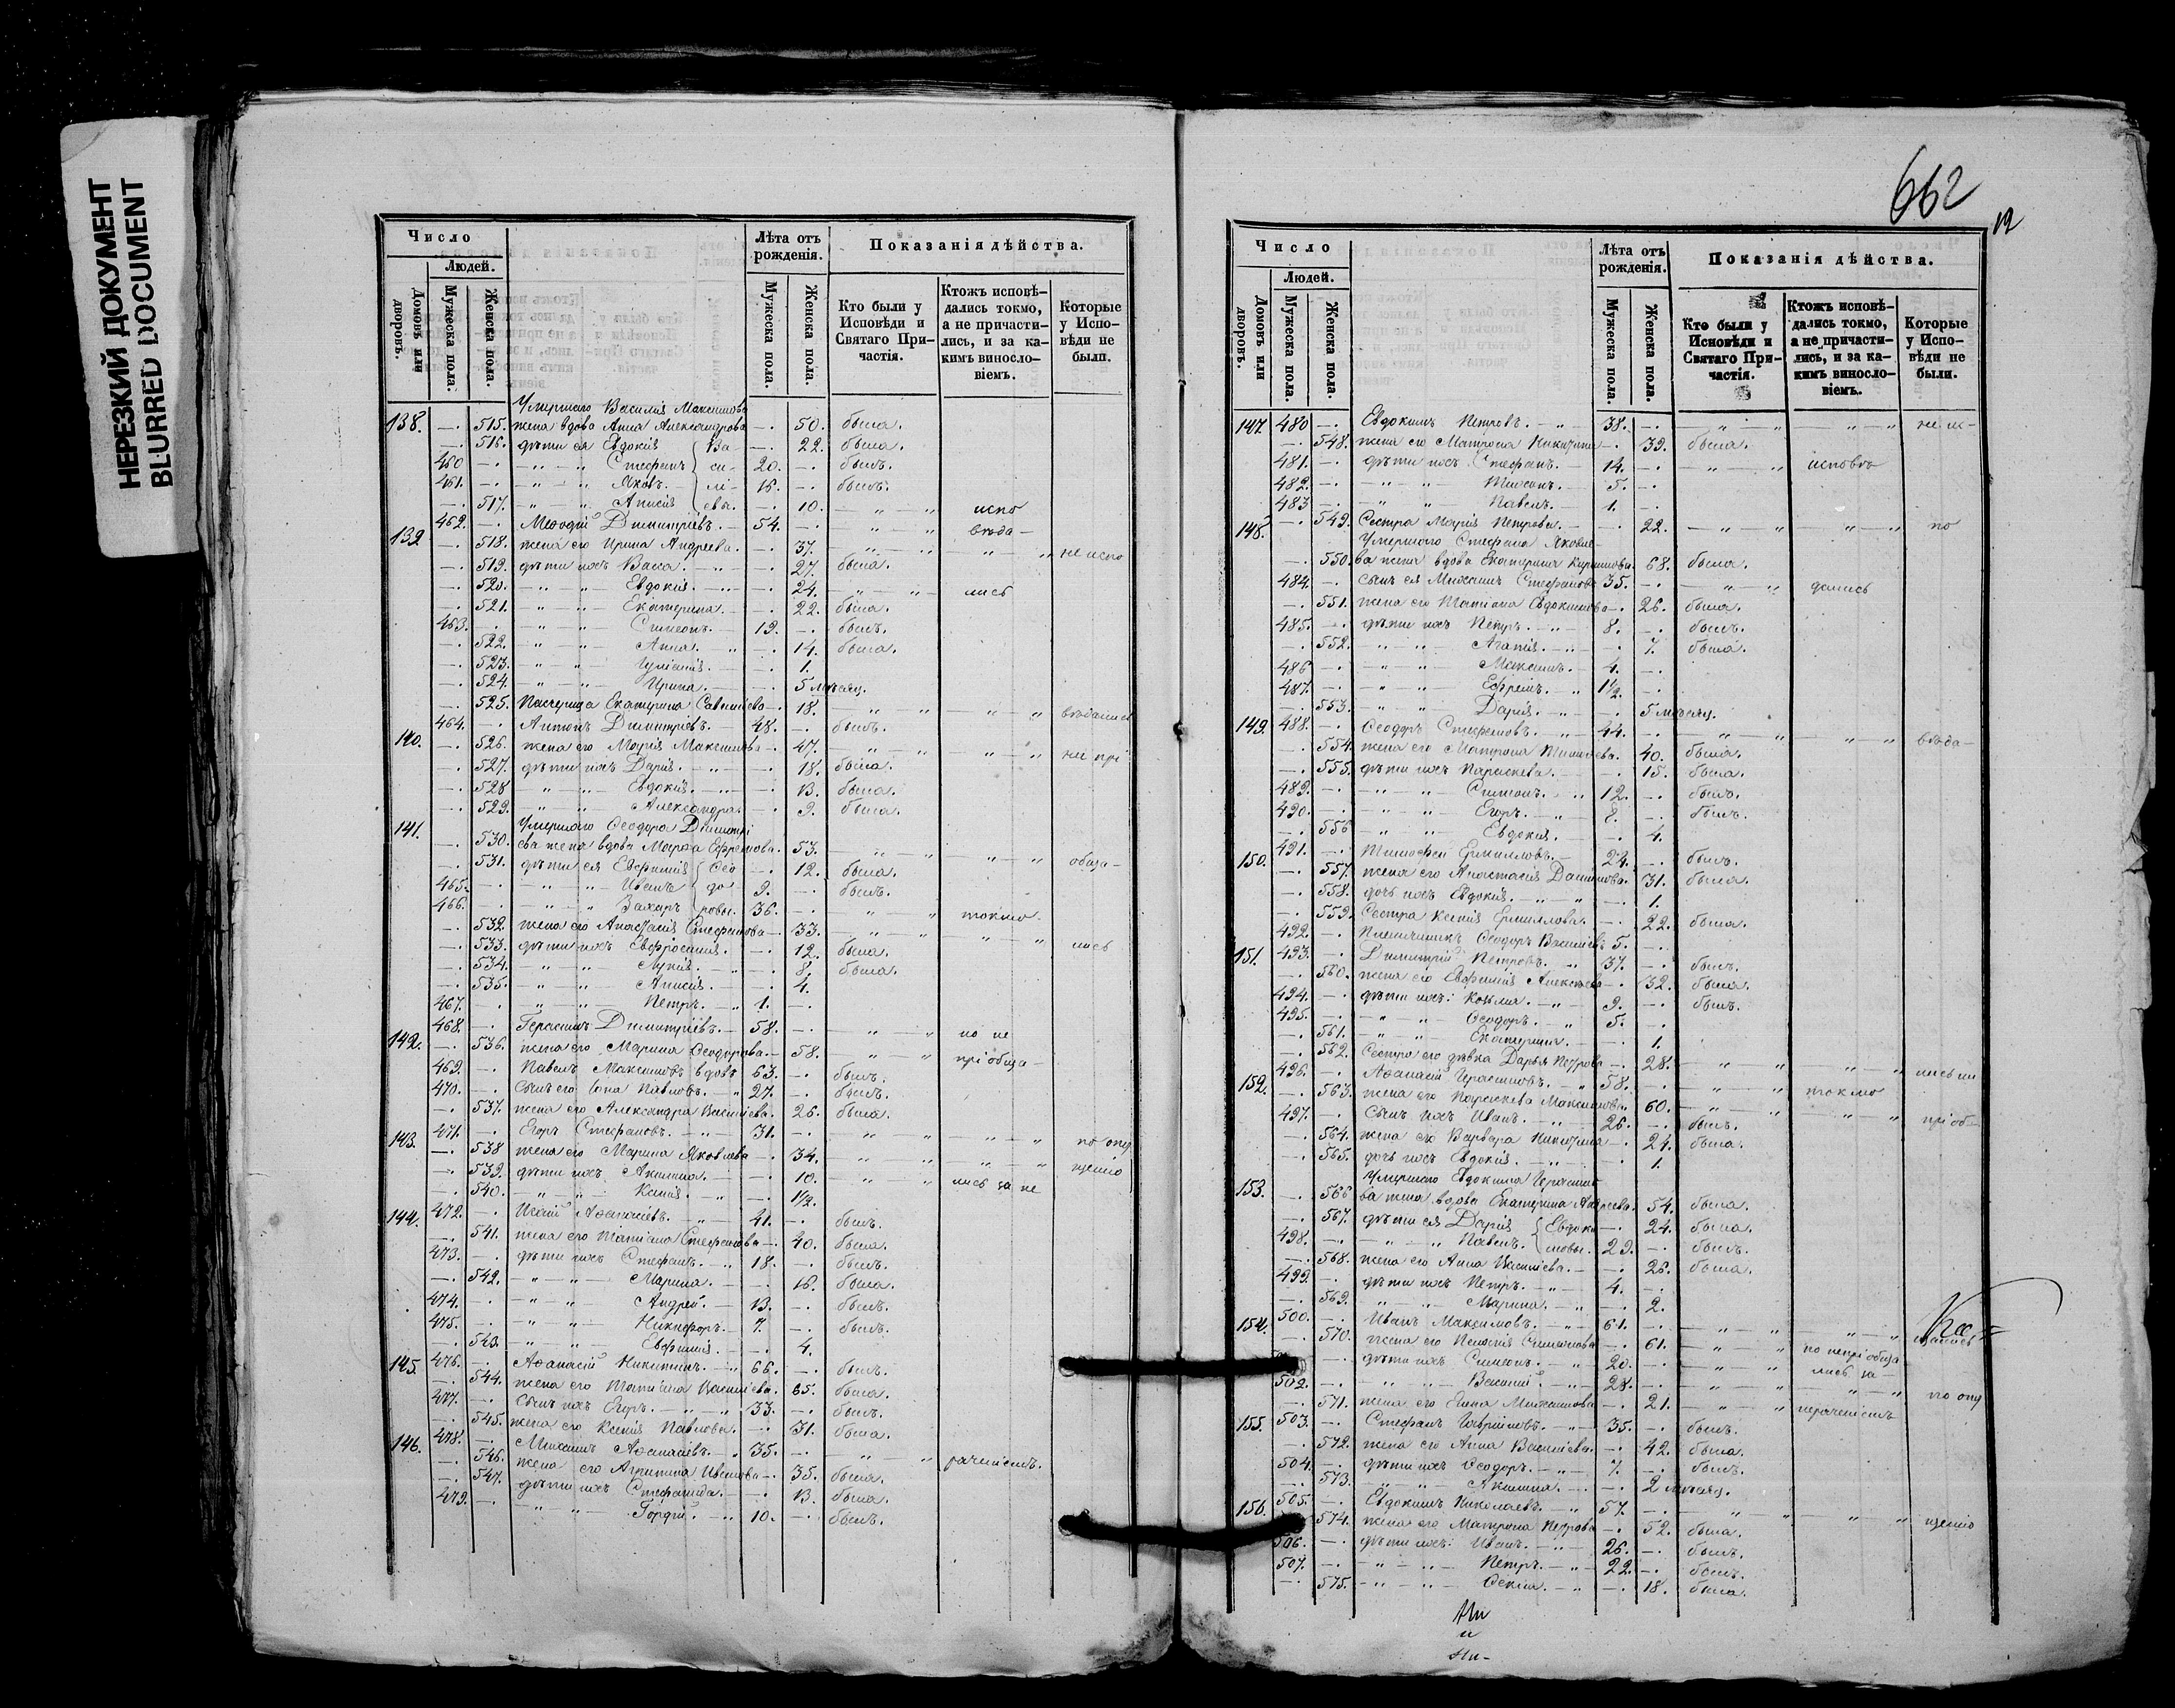 НЕРЕЗКИЙ ДОКУМЕНТ
BLURRED DOCUMENT
Число
Людей.
Домовъ или дворовъ.
Мужеска пола.
Женска пола.
Лѣта отъ рожденія.
Мужеска пола.
Женска пола.
Показанія дѣйства.
Кто были у Исповѣди и Святаго Причастія.
Ктожъ исповѣдались токмо, а не причастились, и за какимъ винословіемъ.
Которые у Исповѣди не были.
Умершаго Василія Максимова
138. —. 515. жена вдова Анна Александрова —. 50. была.
—. 516. дѣти ея Евдокія Ва- —. 22. была.
460 —. — „ — „ Стефанъ си- 20. —. былъ.
461. —. — „ — „ Яковъ. лі- 16. —. былъ.
—. 517. „ „ Анисія евы. —. 10. „ — „ испо
139 462. —. Меѳодій Димитріевъ. — 54. —. „ „ вѣда-
—. 518. жена его Ирина Андреева. —. 37. „ — „ „ — „ не испо
—. 519. дѣти ихъ Васса. — „ — —. 27. была.
—. 520. — „ — „ Евдокія. — —. 24. „ — „ лись
—. 521. „ — „ Екатерина. —. 22. была.
463. —. „ — „ Симеонъ. — 19. —. былъ.
—. 522. „ — „ Анна. — „ —. 14. была.
—. 523. „ — „ Іуліанія. — —. 1.
—. 524. „ — „ Ирина. — —. 5 мѣсяц.
—. 525. Пасчерица Екатерина —. 18. „ „ „ „ вѣдались
464. —. Антонъ Димитріевъ. — 48. —. былъ.
140. —. 526. жена его Марія Максимова —. 47. „ — „ „ — „ не прі
—. 527. дѣти ихъ Дарія. — „ — —. 18. была.
—. 528 „ — „ Евдокія. — „ —. 13. была.
—. 529. „ — „ Александра. —. 9. была.
141. Умершаго Ѳеодора Димитрі
—. 530. ева жена вдова Марѳа Ефремова. 53. „ „ „ — „ обща-
—. 531. дѣти ея Евфимія Ѳео —. 12. была.
465. —. — „ — „ Иванъ до 9. —. былъ.
466. —. — „ — „ Захаръ ровы. 36. —. „ „ токмо.
—. 532. жена его Анастасія Стефанова —. 33. „ — „ „ „ лись
—. 533. дѣти ихъ Евфросинія. —. 12. была.
—. 534. — „ — „ Лукія. — „ —. 8. была.
—. 535. — „ — „ Анисія. —. 4.
467. —. „ — „ Петръ. — „ 1. —.
468. —. Герасимъ Димитріевъ. — 58. —. „ — „ но не
142. —. 536. жена его Марина Ѳеодорова. — 58. „ „ пріобща-
469. —. Павелъ Максимовъ вдовъ 63. —. былъ.
470. —. Сынъ его Іона Павловъ. „ 27. —. былъ.
—. 537. жена его Александра Васильева. 26. была.
143. 471. —. Егоръ Стефановъ. — „ — 31. —. „ — „ „ — „ по опу
—. 538 жена его Марина Яковлева —. 34. „ „ „ — „ щенію
—. 539. дѣти ихъ Акилина. — —. 10. „ „ лись за не
—. 540. — „ — „ Ксенія. — „ —. 1½.
144. 472. —. Аѳанасіевъ. — „ — 41. —. былъ.
—. 541. жена его Татіана Стефанова —. 40. была.
473. —. дѣти ихъ Стефанъ. — „ 18. —. былъ.
—. 542. — „ — „ Марина. — —. 16. была.
474. —. — „ — „ Андрей. — „ 13. —. былъ.
475. —. — „ — „ Никифоръ. — 7. —. былъ.
—. 543. — „ — „ Евфимія. — —. 4.
145. 476. —. Аѳанасій Никитинъ. — „ 66. —. былъ.
—. 544. жена его Татіана Васильева. 65. была.
477. —. Сынъ ихъ Егоръ. — „ — „ 33. —. былъ.
—. 545. жена его Ксенія Павлова. —. 31. была.
146. 478. —. Михаилъ Аѳанасіевъ. — 35. —. „ „ раченіемъ.
—. 546. жена его Агрипина Иванова —. 35. была.
—. 547. дѣти ихъ Стефанида. —. 13. была.
479. —. „ — „ Гордій. — „ 10. —. былъ.
662
12
Число
Людей.
Домовъ или дворовъ.
Мужеска пола.
Женска пола.
Лѣта отъ рожденія.
Мужеска пола.
Женска пола.
Показанія дѣйства.
Кто были у Исповѣди и Святаго Причастія.
Ктожъ исповѣдались токмо, а не причастились, и за какимъ винословіемъ.
Которые у Исповѣди не были.
147. 480 —. Евдокимъ Петровъ. — „ 38. —. „ — „ „ — „ не ис-
—. 548. жена его Матрона Никитина —. 39. была.
481. —. дѣти ихъ Стефанъ. — 14. —. „ — „ исповѣ
482. —. — „ — „ — 5. —.
483 —. — „ — „ Павелъ. — 1. —.
148. —. 549. Сестра Марія Петрова. — —. 22. „ — „ „ — „ по
Умершаго Стефана Яковле-
550. ва жена вдова Екатерина 68. была.
484. —. Сынъ ея Михаилъ Стефановъ 35. —. „ — „ дались
—. 551. жена его Татіана Евдокимова —. 26. была.
485. —. дѣти ихъ Петръ. — „ 8. —. былъ.
—. 552. „ — „ Агапія. — „ —. 7. была.
486 —. „ — „ Максимъ. — 4. —.
487. —. „ — „ Ефремъ. — „ 1½. —.
—. 553. „ — „ Дарія. — „ —. 5 мѣсяц.
149. 488. —. Ѳеодоръ Стефановъ. — 44. —. „ „ „ „ вѣда-
—. 554. жена его Матрона —. 40. была.
—. 555. дѣти ихъ Параскева. — —. 15. была.
489. —. — „ — „ Симеонъ. — „ 12. —. былъ.
490. —. „ — „ Егоръ. — „ 8. —. былъ.
—. 556 „ — „ Евдокія. —. 4.
150. 491. —. Тимоѳей Ермиловъ. — 24. —. былъ.
—. 557. жена его Анастасія —. 31. была.
—. 558. дочь ихъ Евдокія. — „ — „ —. 1.
—. 559. Сестра Ксенія Ермилова. —. 22. была.
492. —. Племянникъ Ѳеодоръ Васильевъ 5. —.
151. 493. —. Димитрій Петровъ. „ 37. —. былъ.
—. 560. жена его Евфимія Алексѣева —. 32. была.
494. —. дѣти ихъ: Козьма. — „ 9. —. былъ.
495. —. „ — „ Ѳеодоръ. — „ 5. —.
—. 561. „ — „ Екатерина. —. 1.
—. 562. Сестра его дѣвка Дарья Петрова —. 28. „ „ „ — „
152. 496. —. Аѳанасій Герасимовъ. — „ 58. —. „ „ токмо
—. 563. жена его Параскева Максимова 60. „ „ „ „ пріоб-
497. —. Сынъ ихъ Иванъ. — „ 26. —. былъ.
—. 564. жена его Варвара Никитина —. 24. была.
—. 565. дочь ихъ Евдокія. — „ — —. 1.
153. Умершаго Евдокима Герасимо
—. 566 ва жена вдова Екатерина Андреева. 54. была.
—. 567. дѣти ея Дарія Евдоки —. 24. была.
498. —. — „ — „ Павелъ. мовы. 29. —. былъ.
—. 568. жена его Анна Васильева. —. 26. была.
499. —. дѣти ихъ Петръ. — „ 4. —.
—. 569. „ — „ Марина. — „ —. 2.
154. 500. —. Иванъ Максимовъ. — „ 61. —. „ „ „ — „ щались
—. 570. жена его Пелагія Симеонова —. 61. „ „ но непріобща
—. дѣти ихъ Симеонъ. — „ 20. —. „ „ лись за
502. —. „ — „ Василій. — „ 28. —. „ „ „ „ по опу
—. 571. жена его Елена Михайлова —. 21. „ „ нераченіемъ
155. 503. —. Стефанъ Гавриловъ. — „ 35. —. былъ.
—. 572. жена его Анна Васильева. —. 42. была.
504. —. дѣти ихъ Ѳеодоръ. — „ 7. —. былъ.
—. 573. „ „ Акилина. — —. 2 мѣсяц.
156. 505. —. Евдокимъ Николаевъ. — „ 57. —. „ „ „ „ щенію
574. жена его Матрона Петрова —. 52. была.
506. —. дѣти ихъ: Иванъ. — „ 26. —. былъ.
507. —. — „ — „ Петръ. — „ 22. —. былъ.
—. 575. — „ — „ — „ —. 18. была.